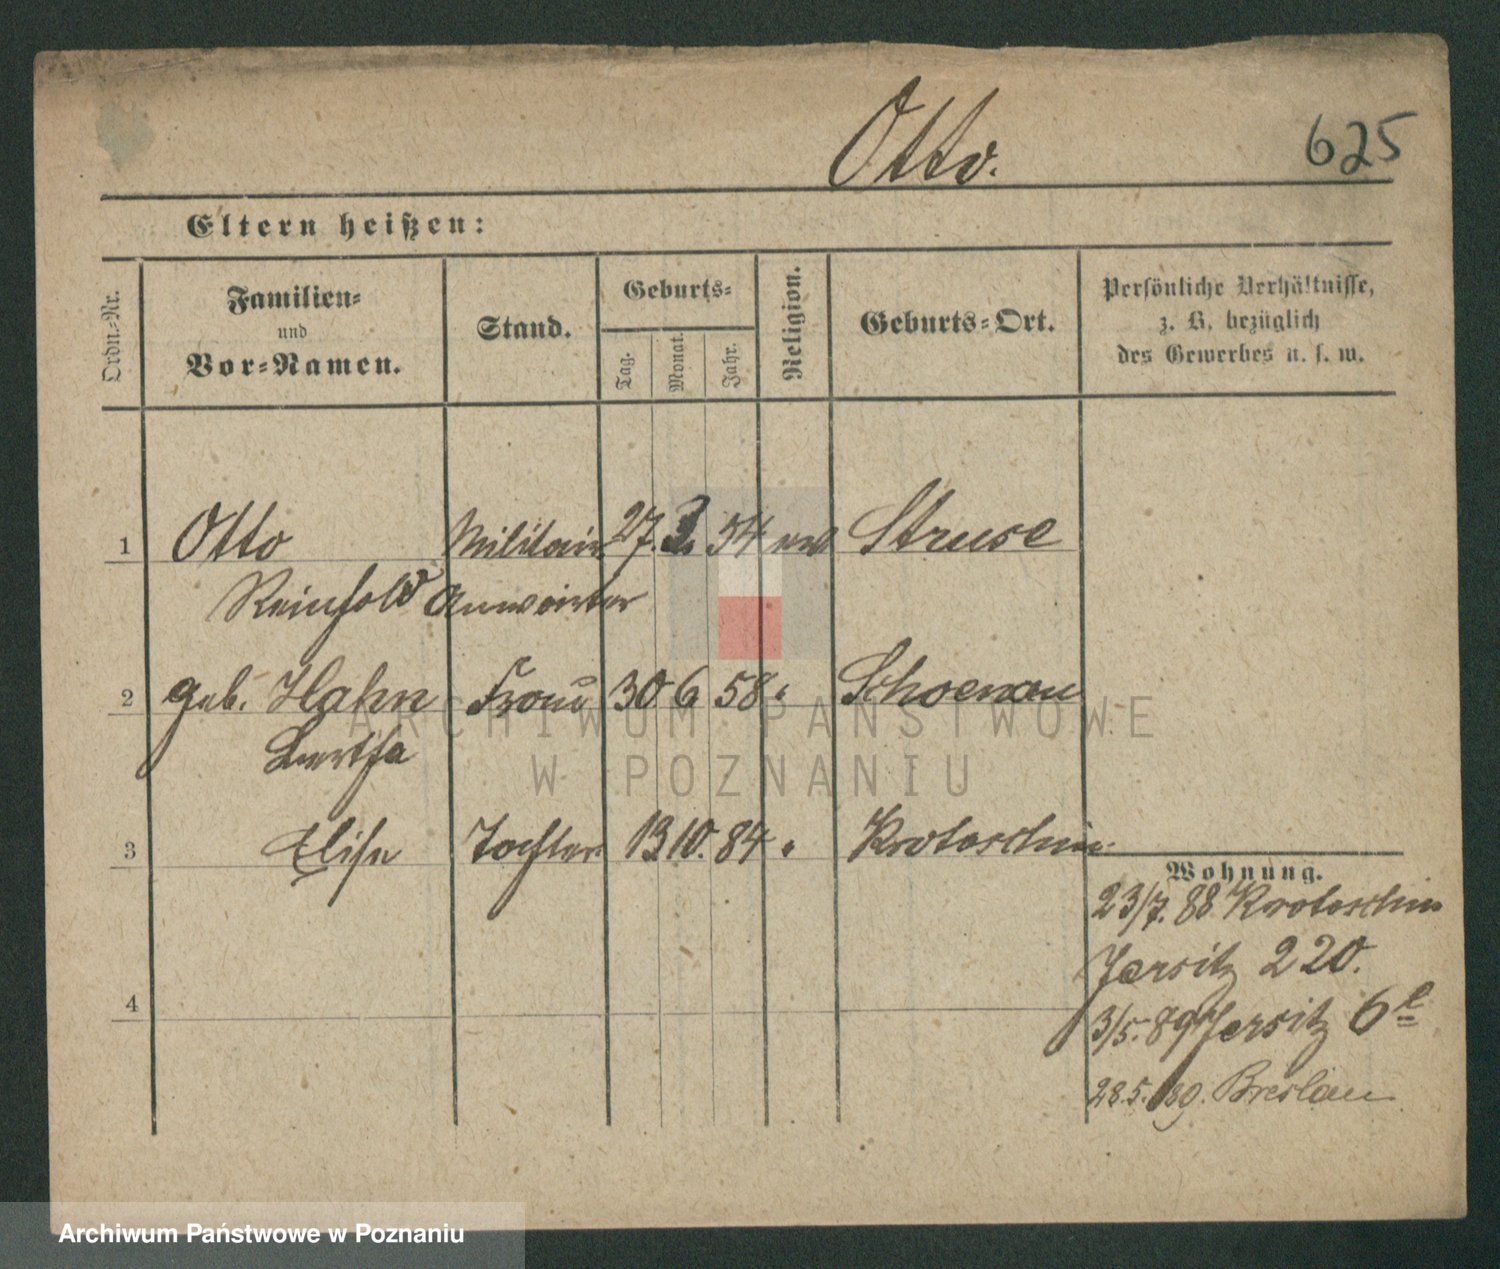 Otto.
625
Eltern heißen:
Ordn.-Nr.
Familien-
und
Vor-Namen.
Stand.
Geburts-
Tag.
Monat.
Jahr.
Religion.
Geburts-Ort.
Persönliche Verhältnisse,
z. B. bezüglich
des Gewerbes u. s. w.
1 Otto Militair 27. 54 ev Struse
Reinhold Anwärter
2 geb. Hahn Frau 30 6 58 " Schoenau
Bertha
3 Elise Tochter 13 10. 84 " Krotoschin
4
Wohnung.
23/7. 88 Krotoschin
Jersitz 220.
3/5. 89 Jersitz 6e
28.5.89. Breslau
ARCHIWUM PAŃSTWOWE
W POZNANIU
Archiwum Państwowe w Poznaniu